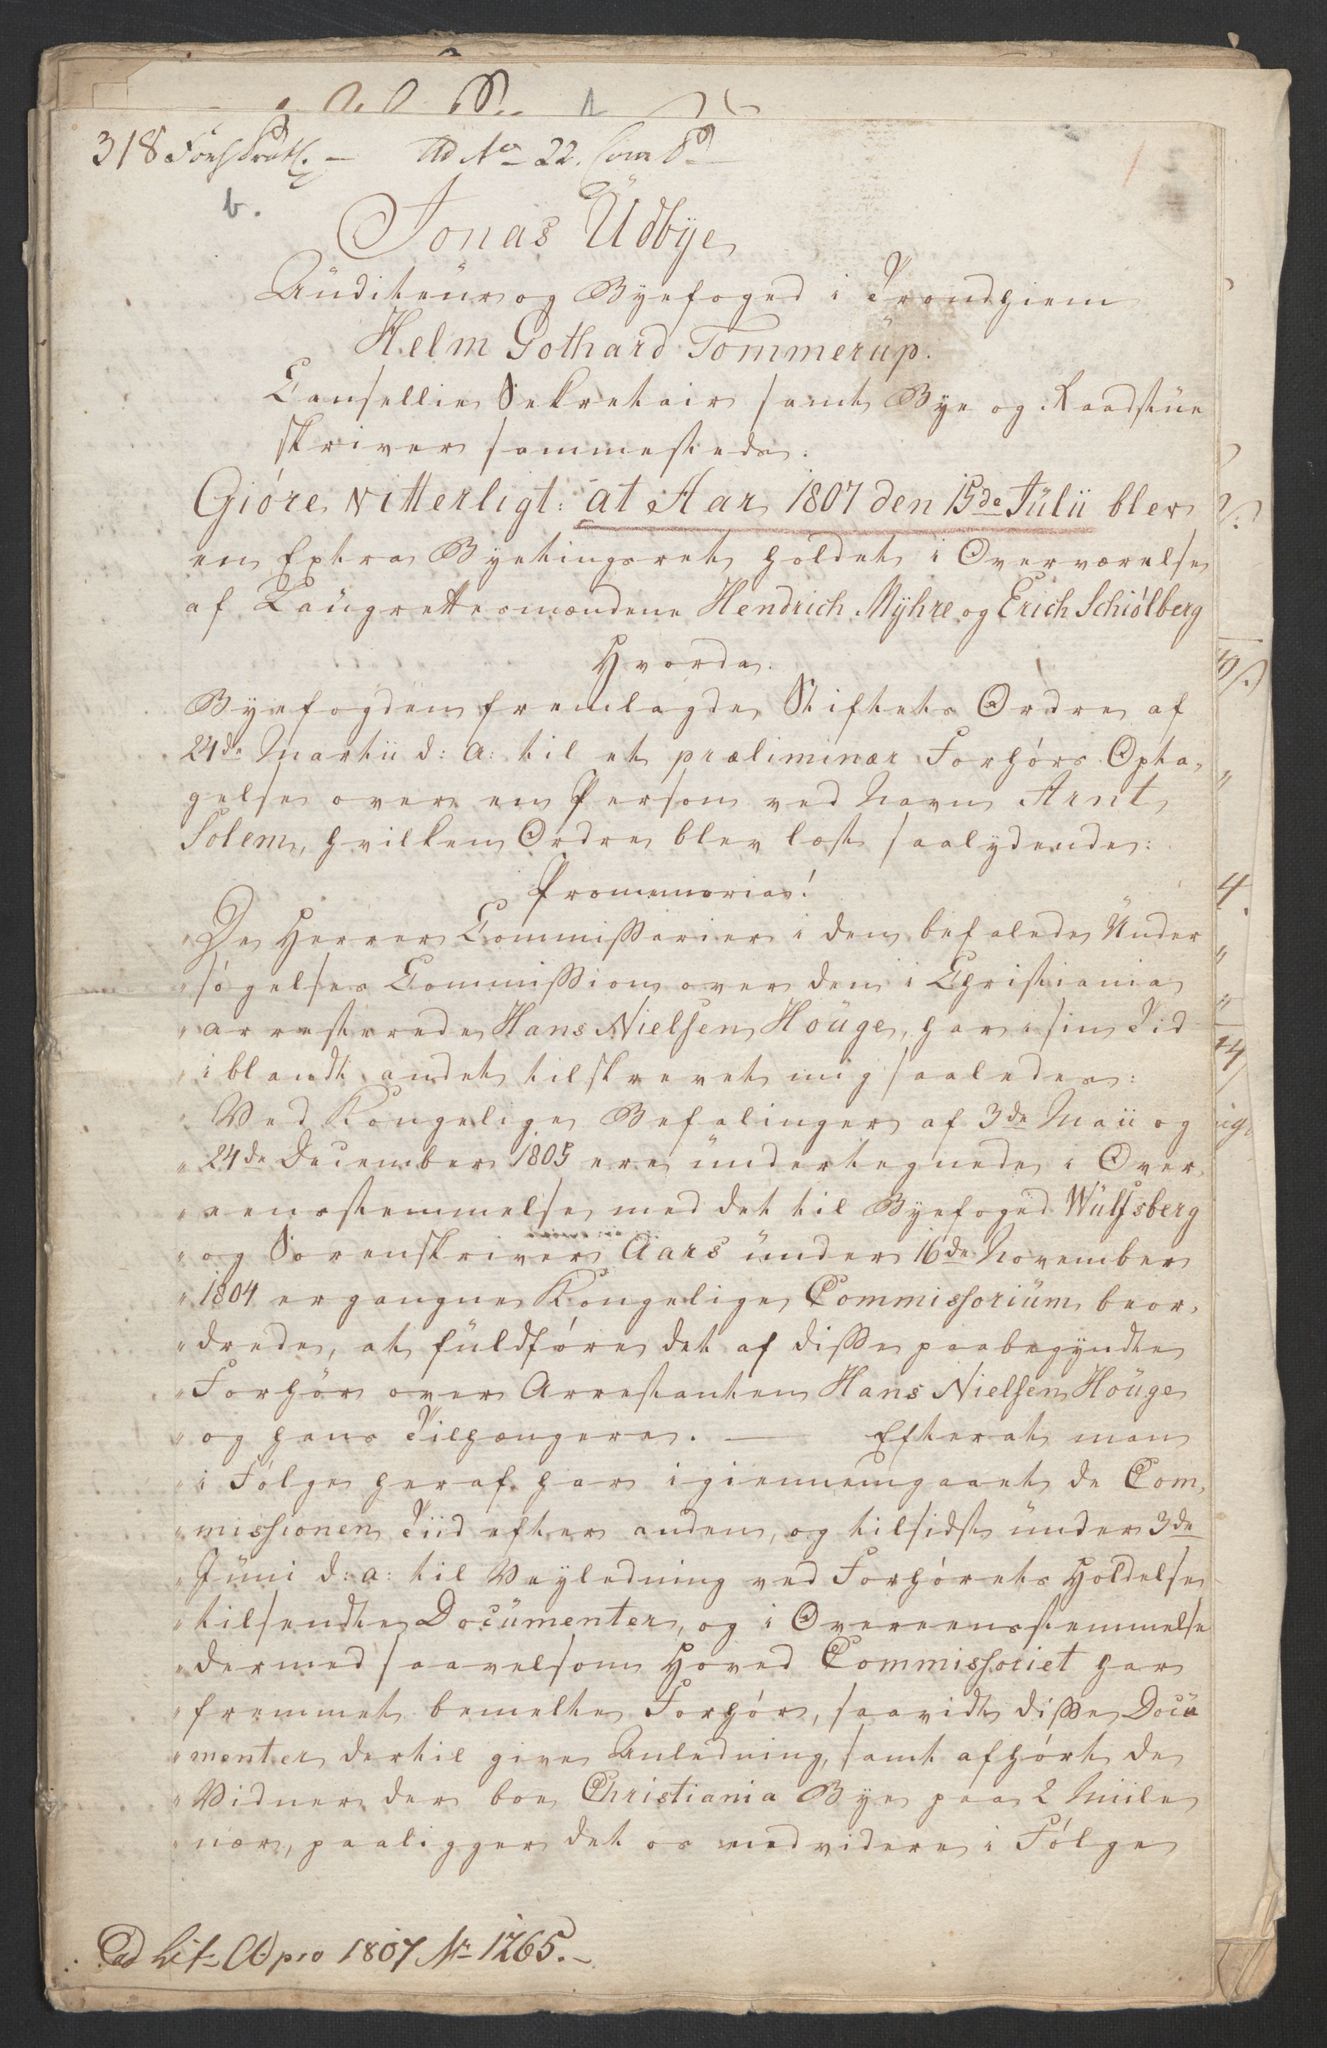 318 Ad No 22.
b.
Jonas Üdbye
Auditeur og Byefoged i Trondhiem
Helm Gothard Tommerüp.
Cansellie Sekretair samt Bye og Raadstüe
skriver sammesteds.
Giöre vitterligt: at Aar 1807 den 15de Jülii blev
en Extra Byetingsret holdet i Overværelse
af Laugrettesmændene Hendrich Mÿhre og Erich Schiölberg
Hvorda.
Byefogden fremlagde Stiftets Ordre af
24de Martii d: a: til et præliminær Forhörs Opta-
gelse over en Person ved Navn Arnt
Solem, hvilken Ordre blev læst saalydende:
Promemoria!
" De Herrer Commissarier i den befalede Ünder
" sögelses Commission over den i Christiania
" arresterede Hans Nielsen Hoüge, har i sin Tid
" iblandt andet tilskrevet mig saaledes:
" Ved Kongelige Befalinger af 3de Maii og
" 24de December 1805 ere ündertegnede i Over-
" eensstemmelse med det til Byefoged Wülfsberg
" og Sorenskriver Aars ünder 16de November
" 1804 ergangne Kongelige Commissoriüm beor-
" drede, at füldföre det af disse paabegyndte
" Forhör over Arrestanten Hans Nielsen Hoüge
" og hans Tilhængere. — Efterat man
" i Fölge heraf har igiennemgaaet de Com-
" missionen Tiid efter anden, og tilsidst ünder 3de
" Jüni d: a: til Veyledning ved Forhörets Holdelse
" tilsendte Documenter, og i Overeensstemmelse
" dermed saavelsom Hoved Commissoriet har
" fremmet bemelte Forhör, saavidt disse Docü
" menter dertil give Anledning, samt afhört de
" Vidner der boe Christiania Bye paa 2 Miile
" nær, paaligger det os med videre i Fölge
ad Lit. pro 1807 Nr 1265.